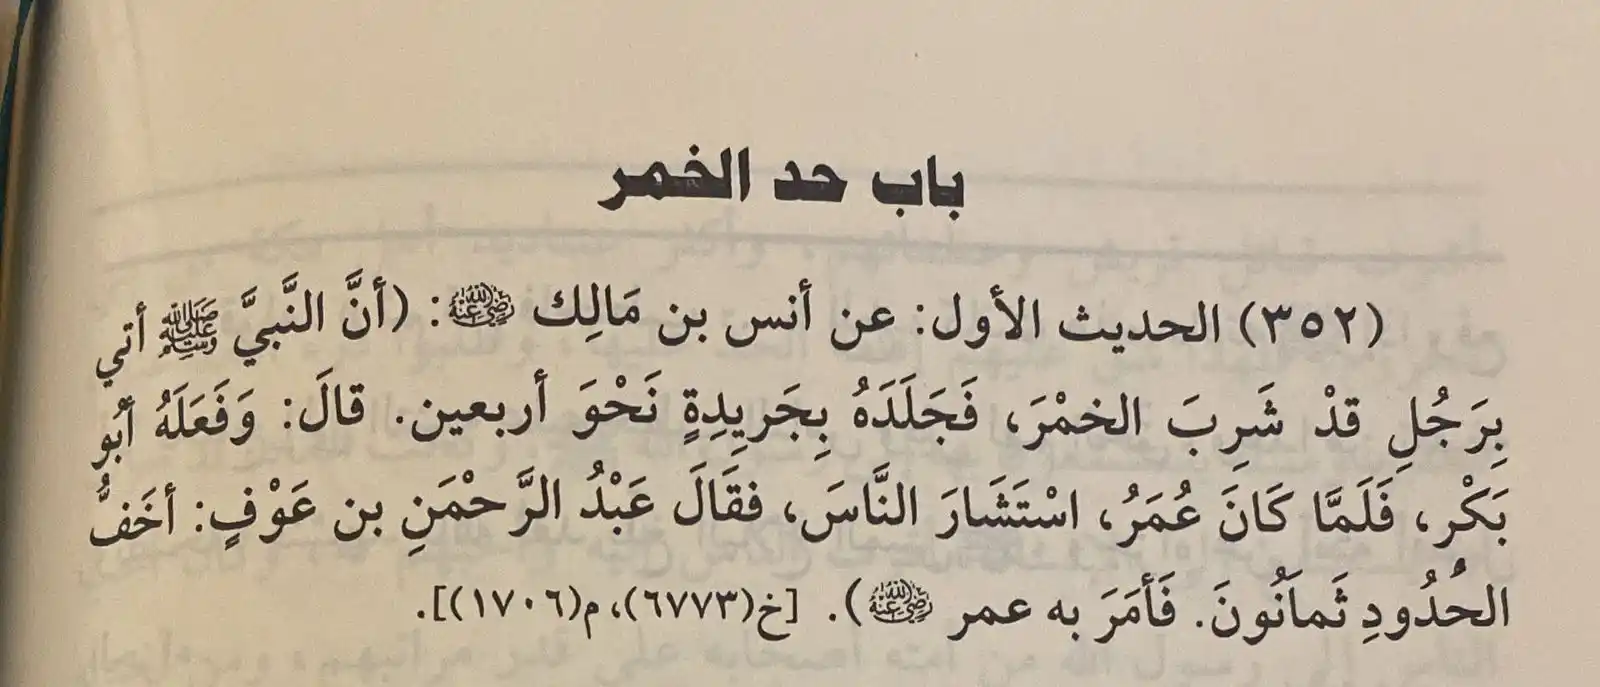 باب حد الخمر
(٣٥٢) الحديث الأول: عن أنس بن مَالِك رضي الله عنه: (أنَّ النَّبيَّ ﷺ أتي
بِرَجُلٍ قدْ شَرِبَ الخمْرَ، فَجَلَدَهُ بِجَريِدِةٍ نَحْوَ أربعين. قالَ: وَفَعَلَهُ أبُو
بَكْرٍ، فَلَمَّا كَانَ عُمَرُ، اسْتَشَارَ النَّاسَ، فقَالَ عَبْدُ الرَّحْمَنِ بن عَوْفٍ: أخَفُّ
الحُدُودِ ثَمانَُونَ. فَأمَرَ به عمر رضي الله عنه). [خ(٦٧٧٣)، م(١٧٠٦)].